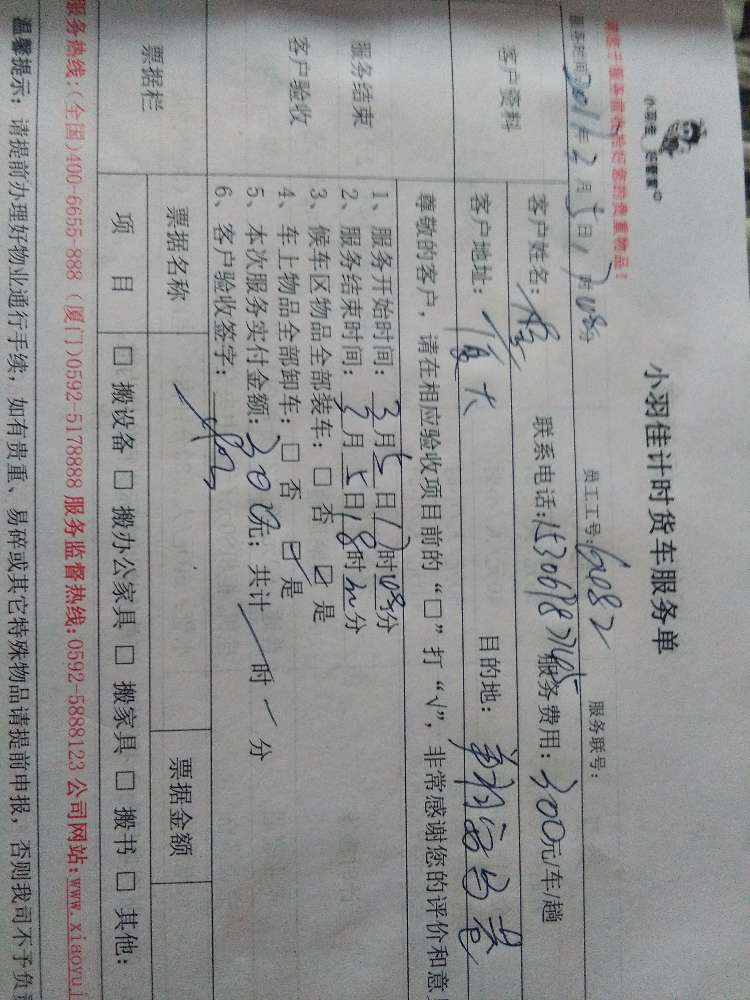 小羽佳 好管家
小羽佳计时货车服务单
请您于服务前收拾好您的贵重物品!
员工工号:6082 服务联号:
服务时间:2017年2月5日17时08分
客户资料
客户姓名: 联系电话: 服务费用:300元/车/趟
客户地址:厦大 目的地:
尊敬的客户,请在相应验收项目前的“□”打“√”,非常感谢您的评价和意
服务结束
客户验收
1、服务开始时间:月5日17时08分
2、服务结束时间:月5日18时分
3、候车区物品全部装车:□ 否 ☑ 是
4、车上物品全部卸车:□ 否 ☑ 是
5、本次服务实付金额:300元;共计 / 时 / 分
6、客户验收签字:
票据栏
票据名称 票据金额
项 目 □ 搬设备 □ 搬办公家具 □ 搬家具 □ 搬书 □ 其他:
服务热线:(全国)400-6655-888 (厦门)0592-5178888 服务监督热线:0592-5888123 公司网站:www.xiaoyuj
温馨提示:请提前办理好物业通行手续,如有贵重、易碎或其它特殊物品请提前申报,否则我司不予负责